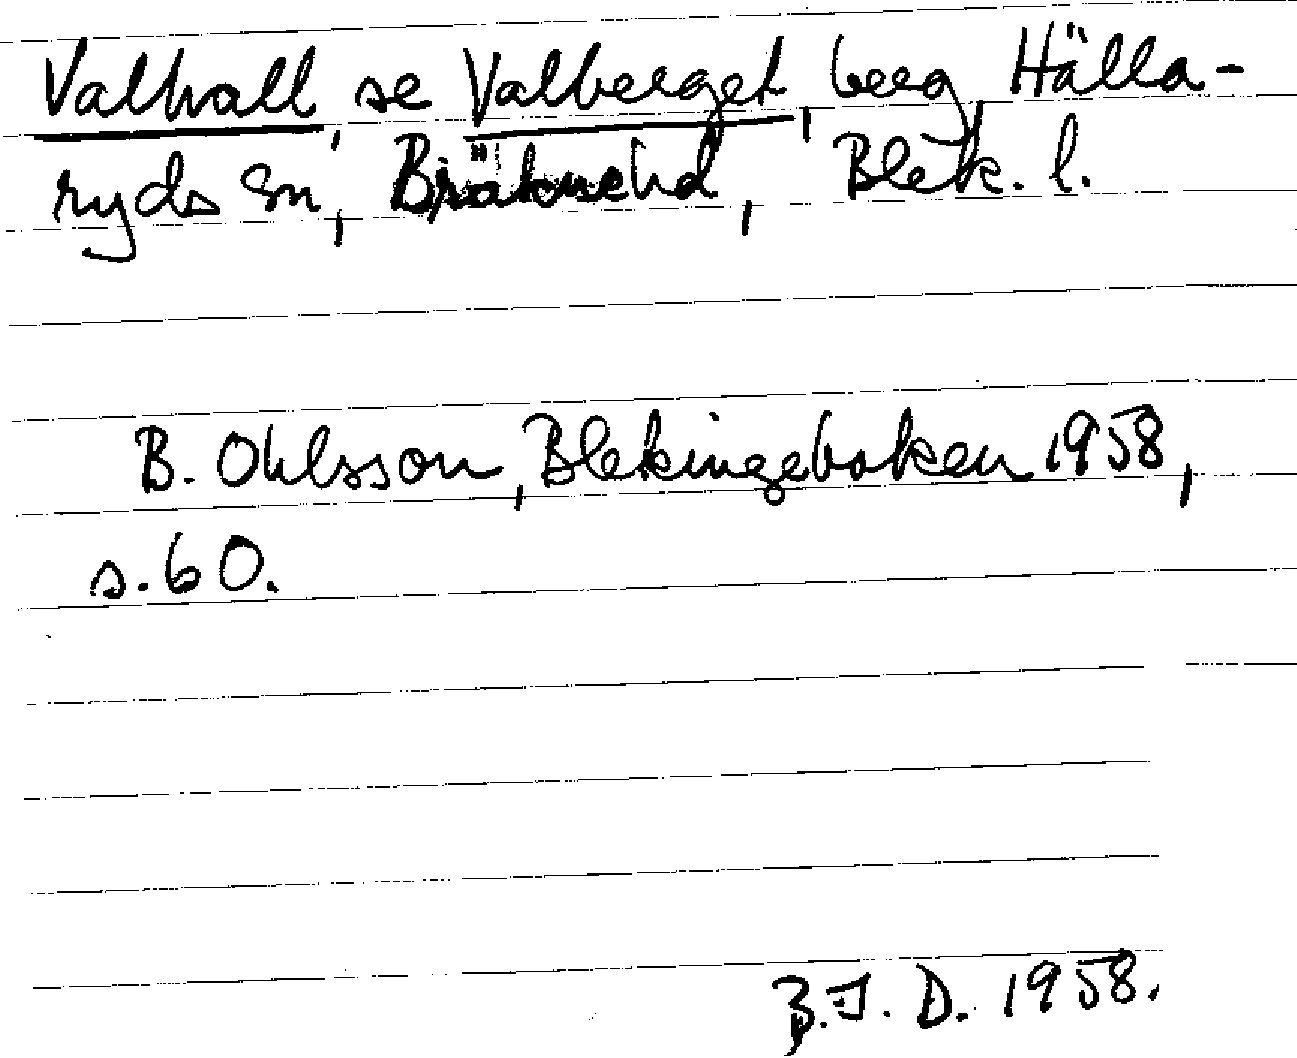 Valhall, se Valberget, berg, Hälla-
ryds sn, Bräknehd, Blek. l.
B. Ohlsson, Blekingeboken 1958,
s. 60.
B.J.D. 1958.